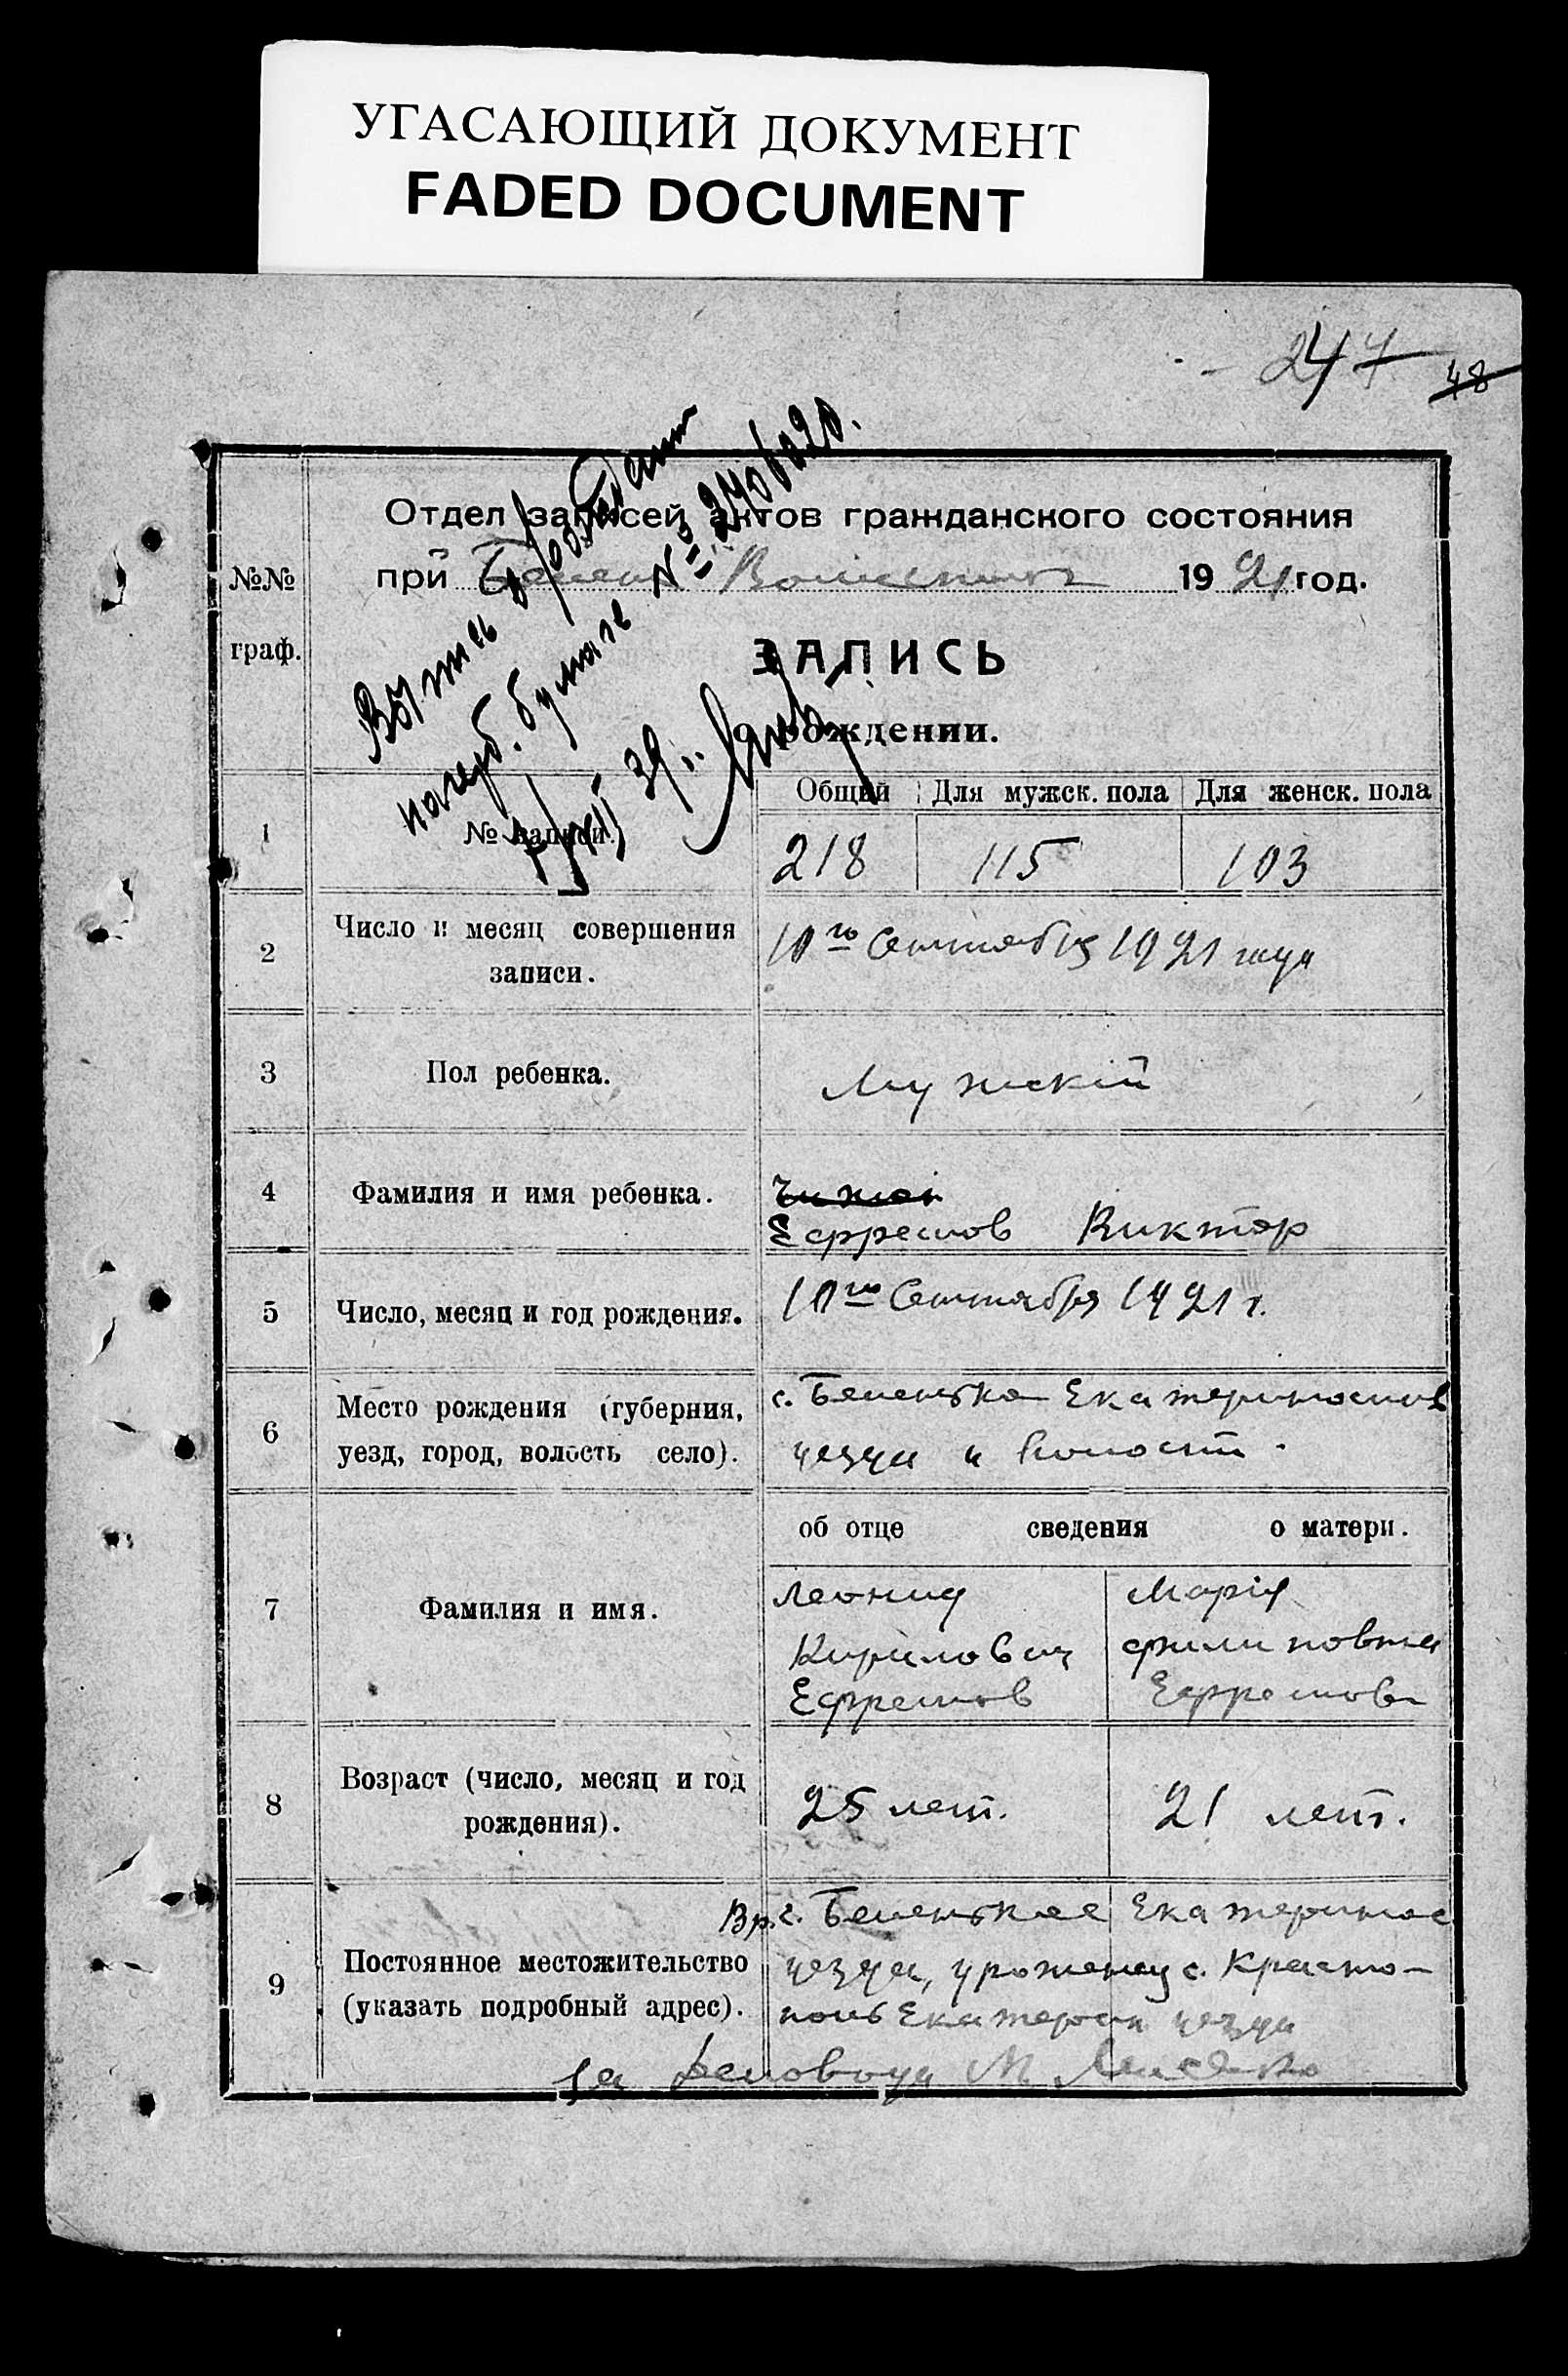 УГАСАЮЩИЙ ДОКУМЕНТ
FADED DOCUMENT
247
48
№№
граф.
Отдел записей актов гражданского состояния
при 1921 год.
ЗАПИСЬ
о рождении.
на герб. бумаге № 2406020.
39 г.
Общий Для мужск. пола Для женск. пола
1 № записи. 218 115 103
2 Число и месяц совершения
записи.
10го Сентября 1921 года
3 Пол ребенка. Мужскій
4 Фамилия и имя ребенка.
Ефремов Виктор
5 Число, месяц и год рождения. 10го Сентября 1921 г.
6 Место рождения (губерния,
уезд, город, волость село).
с. Беленькое Екатеринослав
уезда и волости.
об отце сведения о матери.
7 Фамилия и имя.
Леонид
Кирилович
Ефремов
Марія
Филиповна
Ефремова
8 Возраст (число, месяц и год
рождения).
25 лет. 21 лет.
9 Постоянное местожительство
(указать подробный адрес).
Вр. с. Беленькое Екатеринос
уезда, уроженец с. Красно-
поль Екатерин уезда
За Деловода М.